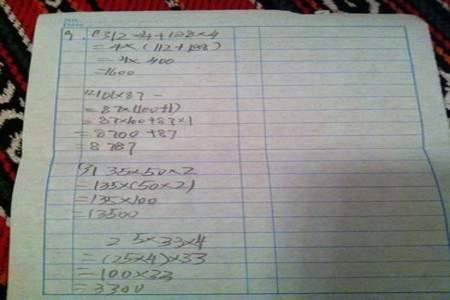 9 (1) 312×4+188×4
=4×(312+188)
=4×400
=1600
(2) 101×87
=87×(100+1)
=87×100+87×1
=8700+87
=8787
(3) 135×50×2
=135×(50×2)
=135×100
=13500
25×33×4
=(25×4)×33
=100×33
=3300